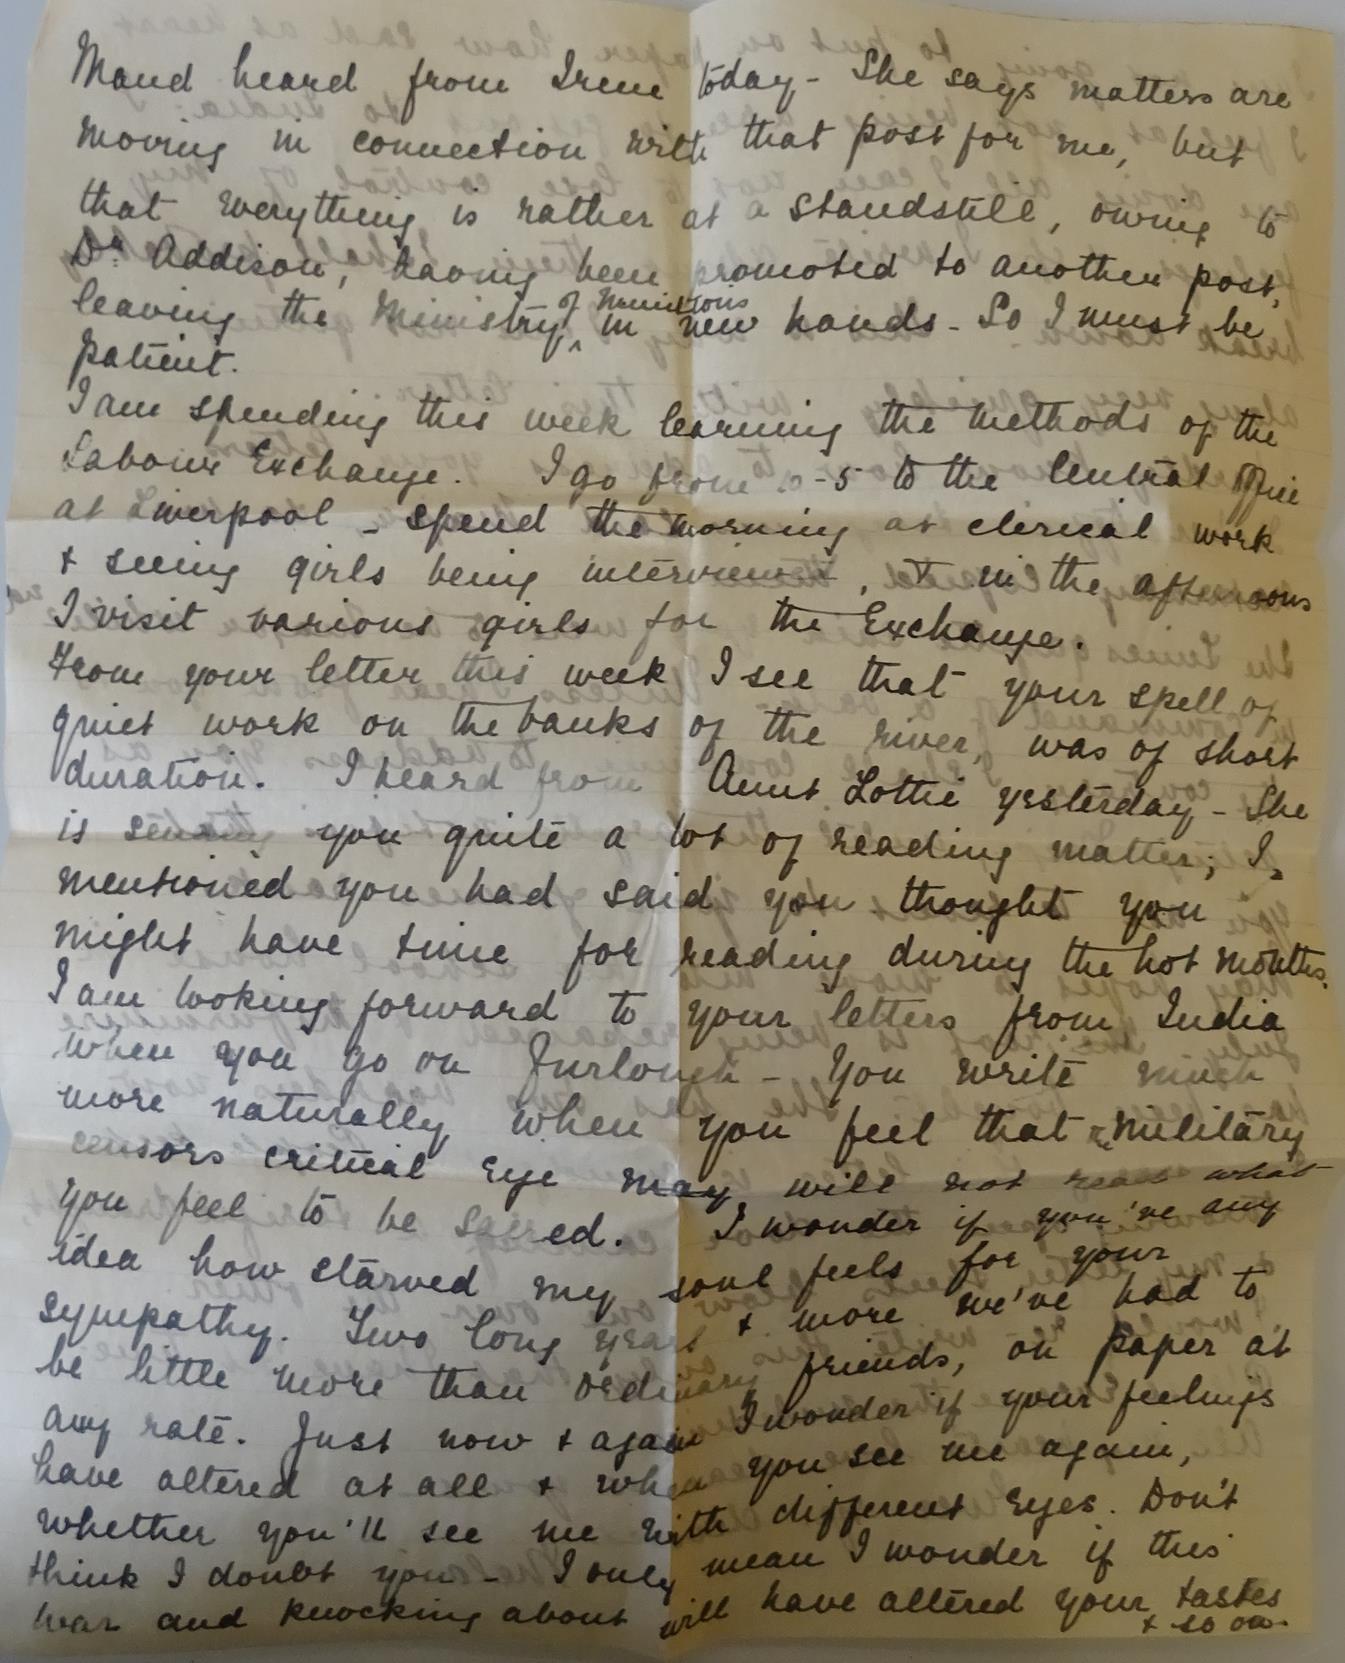 Maud heard from Irene today - She says matters are
moving in connection with that post for me, but
that everything is rather at a standstill, owing to
Dr. Addison, having been promoted to another post,
leaving the Ministry of Munitions in new hands - So I must be
patient.
I am spending this week learning the methods of the
Labour Exchange. I go from 10-5 to the Central Office
at Liverpool - spend the morning at clerical work
+ seeing girls being interviewed, + in the afternoons
I visit various girls for the Exchange.
From your letter this week I see that your spell of
quiet work on the banks of the river, was of short
duration. I heard from Aunt Lottie yesterday - She
is sending you quite a lot of reading matter; I
mentioned you had said you thought you
might have time for reading during the hot months.
I am looking forward to your letters from India
when you go on Furlough - You write much
more naturally when you feel that a military
censors critical eye may will not read what
you feel to be sacred. I wonder if you've any
idea how starved my soul feels for your
sympathy. Two long years + more we've had to
be little more than ordinary friends, on paper at
any rate. Just now + again I wonder if your feelings
have altered at all + when you see me again,
whether you'll see me with different eyes. Don't
think I doubt you - I only mean I wonder if this
war and knocking about will have altered your tastes
+ so on.